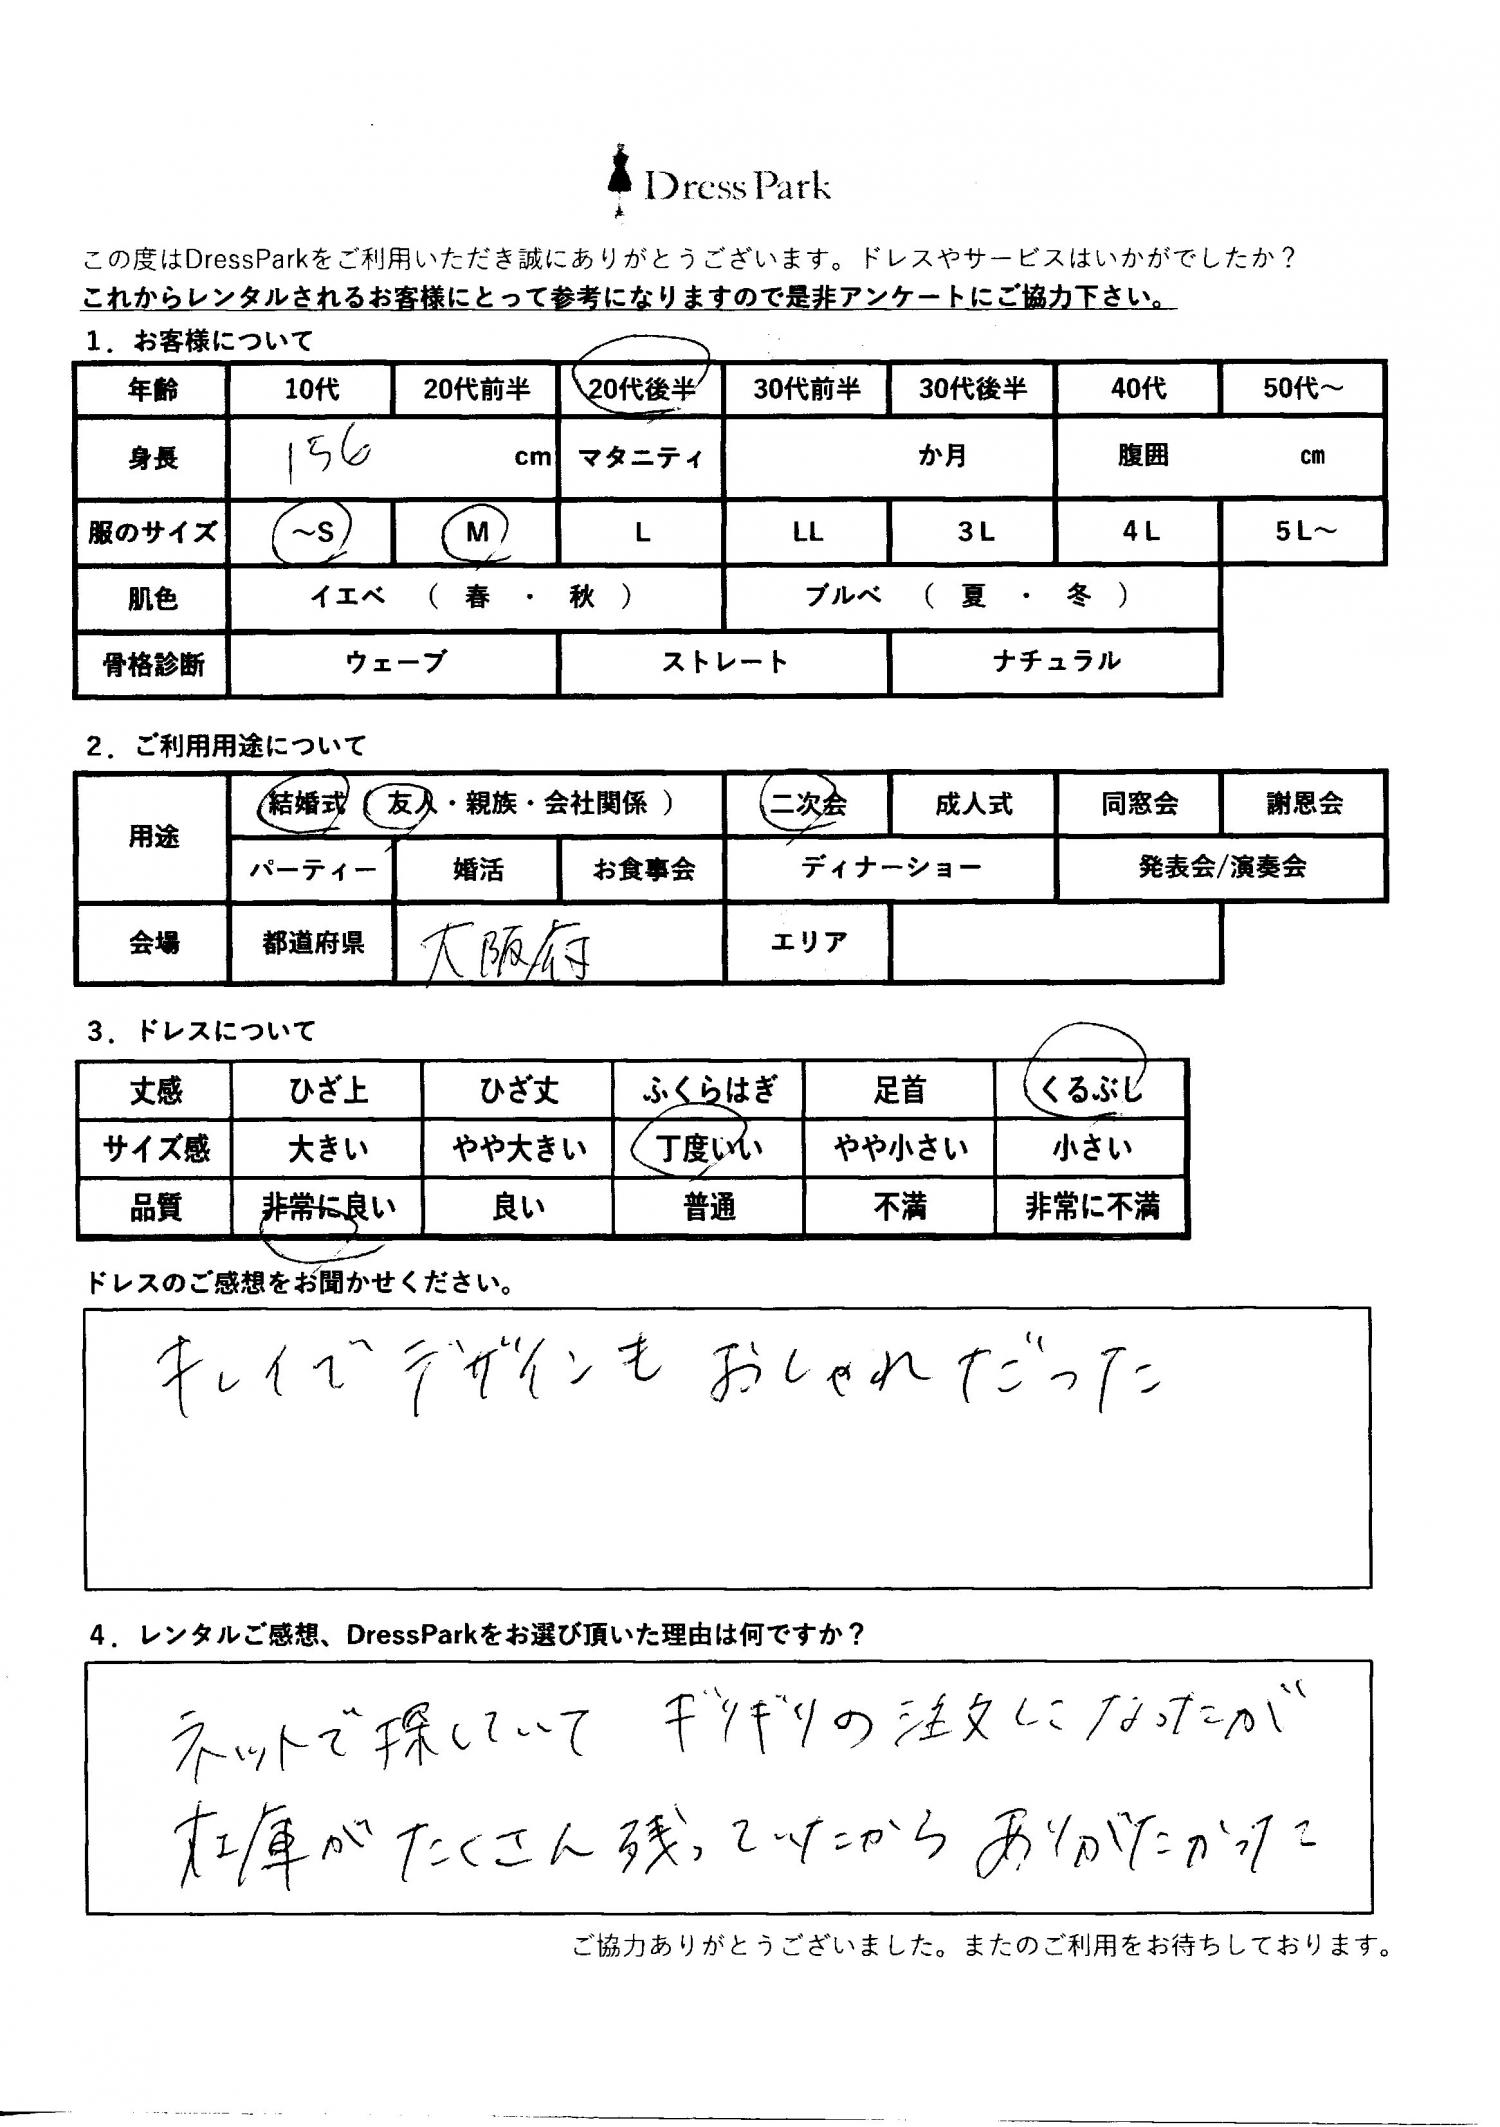 Dress Park
この度はDressParkをご利用いただき誠にありがとうございます。ドレスやサービスはいかがでしたか？
これからレンタルされるお客様にとって参考になりますので是非アンケートにご協力下さい。
1．お客様について
年齢 10代 20代前半 20代後半 30代前半 30代後半 40代 50代～
身長 156 cm マタニティ か月 腹囲 ㎝
服のサイズ ～S M L LL 3L 4L 5L～
肌色 イエベ （ 春 ・ 秋 ） ブルベ （ 夏 ・ 冬 ）
骨格診断 ウェーブ ストレート ナチュラル
2．ご利用用途について
用途 結婚式（友人・親族・会社関係） 二次会 成人式 同窓会 謝恩会
パーティー 婚活 お食事会 ディナーショー 発表会/演奏会
会場 都道府県 大阪府 エリア
3．ドレスについて
丈感 ひざ上 ひざ丈 ふくらはぎ 足首 くるぶし
サイズ感 大きい やや大きい 丁度いい やや小さい 小さい
品質 非常に良い 良い 普通 不満 非常に不満
ドレスのご感想をお聞かせください。
キレイで デザインも おしゃれだった
4．レンタルご感想、DressParkをお選び頂いた理由は何ですか？
ネットで探していて ギリギリの注文になったが
在庫がたくさん残っていたから ありがたかった
ご協力ありがとうございました。またのご利用をお待ちしております。